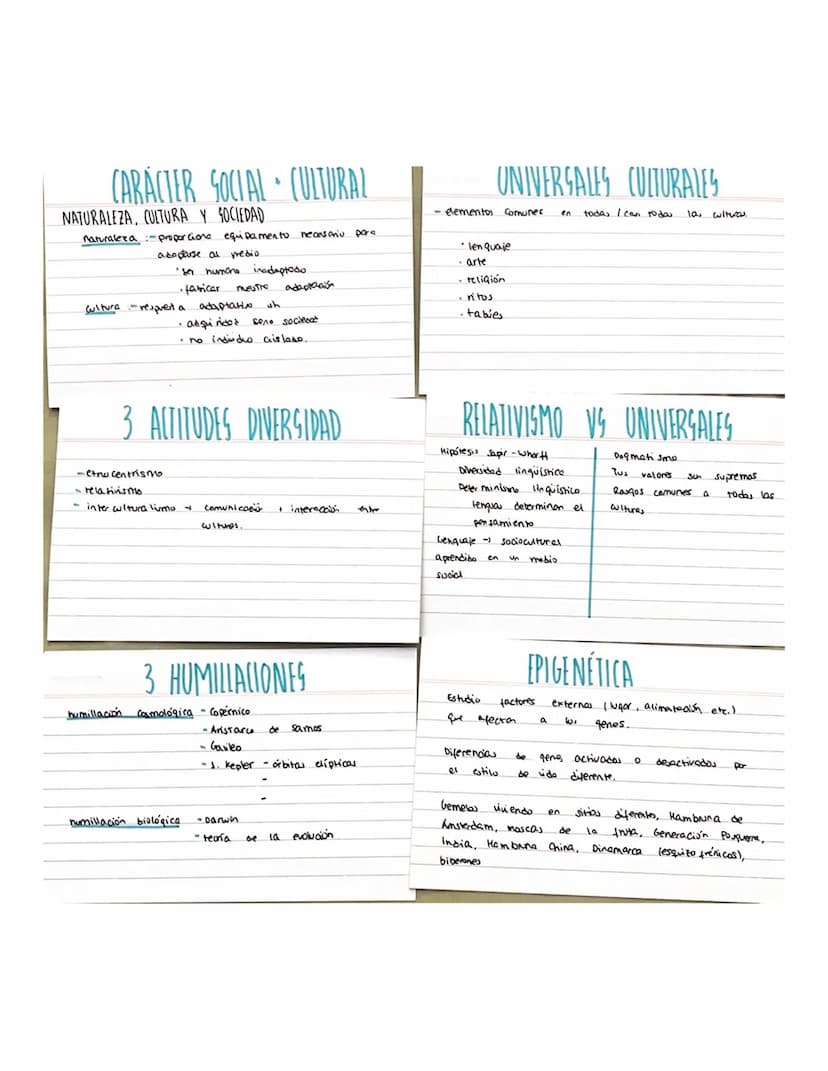 CARÁCTER SOCIAL + CULTURAL
NATURALEZA, CULTURA Y SOCIEDAD
naturaleza :- proporciona equipamento necesario para
adaptarse al medio
· ser humano inadaptado
· fabricar nuestra adaptación
cultura :- respuesta adaptativa
· adquiridos sociedad
· no individuo aislado.
UNIVERSALES CULTURALES
- elementos comunes en todas / casi todas las culturas
· lenguaje
· arte
· religión
· ritos
· tabúes
3 ACTITUDES DIVERSIDAD
- etnocentrismo
- relativismo
- interculturalismo → comunicació e interacción entre
culturas.
RELATIVISMO VS UNIVERSALES
Hipótesis Sapir-Whorf
Diversidad lingüística
Determinismo lingüístico
lenguas determinan el
pensamiento
Lenguaje → sociocultural
aprendido en un medio
social
Dogmatismo
Tus valores son supremos
Rasgos comunes a todas las
culturas
3 HUMILLACIONES
humillación cosmológica - Copérnico
- Aristarco de Samos
- Galileo
- J. Kepler - órbitas elípticas
-
-
humillación biológica - Darwin
- teoría de la evolución
EPIGENÉTICA
Estudio factores externos (lugar, alimentación etc.)
que afectan a los genes.
Diferencias de genes activados o desactivados por
el estilo de vida diferente.
Gemelos viviendo en sitios diferentes, Hambruna de
Amsterdam, moscas de la fruta, Generación Posguerra,
India, Hambruna China, Dinamarca (esquizofrénicos),
biberones